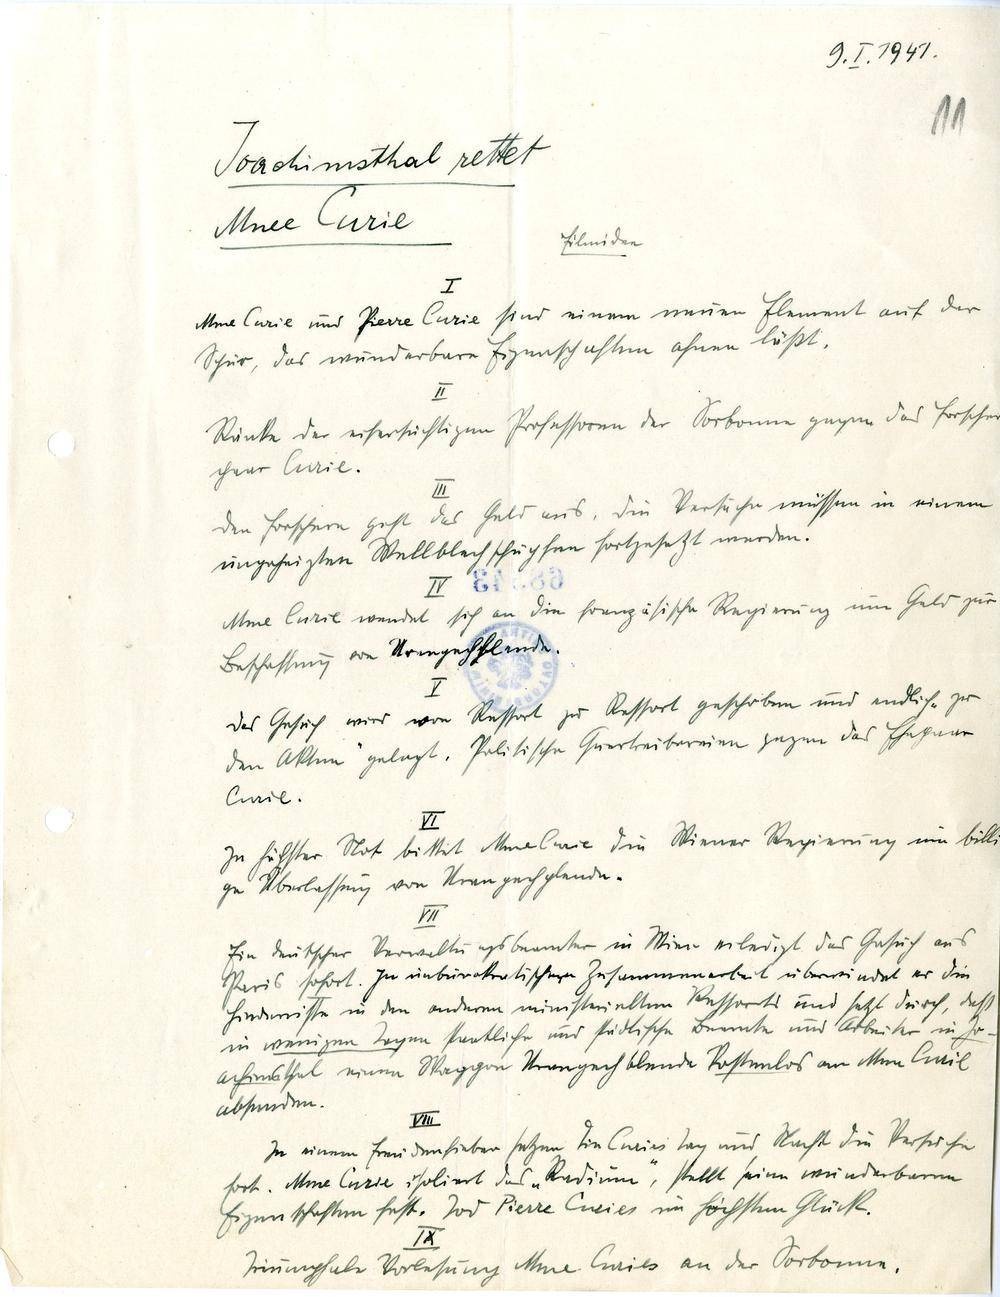 9.I.1941.
11
Joachimsthal rettet
Mme Curie
Filmidee
I
Mme Curie und Pierre Curie sind einem neuen Element auf der
Spur, das wunderbare Eigenschaften ahnen läßt.
II
Ränke der eifersüchtigen Professoren der Sorbonne gegen das Forscher
paar Curie.
III
Den Forschern geht das Geld aus. Die Versuche müssen in einem
ungeheizten Wellblechschuppen fortgesetzt werden.
IV
Mme Curie wendet sich an die französische Regierung um Geld zur
Beschaffung von Uranpechblende.
V
Das Gesuch wird von Ressort zu Ressort geschoben und endlich „zu
den Akten" gelegt. Politische Quertreibereien gegen das Ehepaar
Curie.
VI
In höchster Not bittet Mme Curie die Wiener Regierung um billi
ge Überlassung von Uranpechblende.
VII
Ein deutscher Verwaltungsbeamter in Wien erledigt das Gesuch aus
Paris sofort. In unbürokratischer Zusammenarbeit überwindet er die
Hindernisse in den anderen ministeriellen Ressorts und setzt durch, daß
in wenigen Tagen staatliche und städtische Beamte und Arbeiter in Jo-
achimsthal einen Waggon Uranpechblende kostenlos an Mme Curie
absenden.
VIII
In einem Freudenfieber setzen die Curies Tag und Nacht die Versuche
fort. Mme Curie isoliert das „Radium", stellt seine wunderbaren
Eigenschaften fest. Tod Pierre Curies im höchsten Glück.
IX
Triumphale Vorlesung Mme Curies an der Sorbonne.